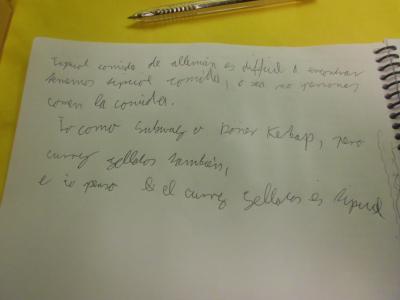 típical comida de allemán es difficil a encontrar
tenemos típical comida, o sea no personas
comen la comida.
Io como subway o Döner Kebap, pero
currey también,
e io penso el currey es típical